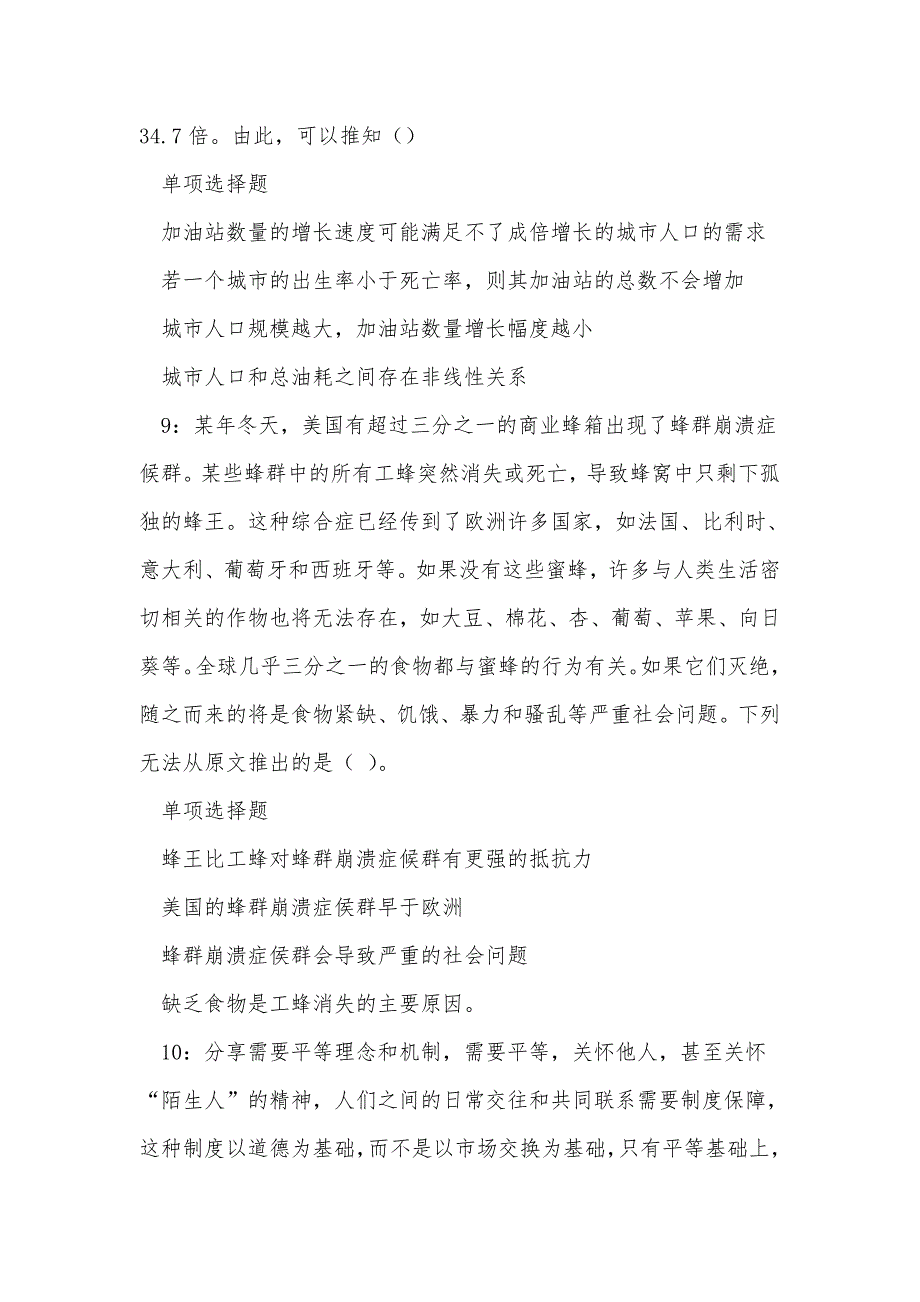 34.7 倍。由此，可以推知（）
单项选择题
加油站数量的增长速度可能满足不了成倍增长的城市人口的需求
若一个城市的出生率小于死亡率，则其加油站的总数不会增加
城市人口规模越大，加油站数量增长幅度越小
城市人口和总油耗之间存在非线性关系
9：某年冬天，美国有超过三分之一的商业蜂箱出现了蜂群崩溃症
候群。某些蜂群中的所有工蜂突然消失或死亡，导致蜂窝中只剩下孤
独的蜂王。这种综合症已经传到了欧洲许多国家，如法国、比利时、
意大利、葡萄牙和西班牙等。如果没有这些蜜蜂，许多与人类生活密
切相关的作物也将无法存在，如大豆、棉花、杏、葡萄、苹果、向日
葵等。全球几乎三分之一的食物都与蜜蜂的行为有关。如果它们灭绝，
随之而来的将是食物紧缺、饥饿、暴力和骚乱等严重社会问题。下列
无法从原文推出的是（ ）。
单项选择题
蜂王比工蜂对蜂群崩溃症候群有更强的抵抗力
美国的蜂群崩溃症侯群早于欧洲
蜂群崩溃症侯群会导致严重的社会问题
缺乏食物是工蜂消失的主要原因。
10：分享需要平等理念和机制，需要平等，关怀他人，甚至关怀
“陌生人”的精神，人们之间的日常交往和共同联系需要制度保障，
这种制度以道德为基础，而不是以市场交换为基础，只有平等基础上，